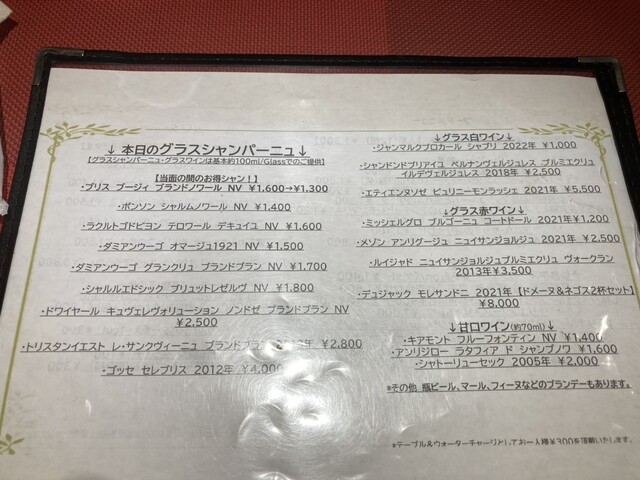 ↓ 本日のグラスシャンパーニュ↓
【グラスシャンパーニュ・グラスワインは基本約100ml/Glassでのご提供】
【当面の間のお得シャン！】
・ブリス ブージィ ブランドノワール NV ¥1,600→¥1,300
・ポンソン シャルムノワール NV ¥1,400
・ラクルトゴドビヨン テロワール デキュイユ NV ¥1,600
・ダミアンウーゴ オマージュ1921 NV ¥1,500
・ダミアンウーゴ グランクリュ ブランドブラン NV ¥1,700
・シャルルエドシック ブリュットレゼルヴ NV ¥1,800
・ドワイヤール キュヴェレヴォリューション ノンドゼ ブランドブラン NV
¥2,500
・トリスタンイエスト レ・サンクヴィーニュ ブランドブラン ¥2,800
・ゴッセ セレブリス 2012年 ¥4,000
↓グラス白ワイン↓
・ジャンマルクブロカール シャブリ 2022年 ¥1,000
・シャンドンドブリアイユ ペルナンヴェルジュレス プルミエクリュ
イルデヴェルジュレス 2018年 ¥2,500
・エティエンヌソゼ ピュリニーモンラッシェ 2021年 ¥5,500
↓グラス赤ワイン↓
・ミッシェルグロ ブルゴーニュ コートドール 2021年¥1,200
・メゾン アンリグージュ ニュイサンジョルジュ 2021年 ¥2,500
・ルイジャド ニュイサンジョルジュプルミエクリュ ヴォークラン
2013年¥3,500
・デュジャック モレサンドニ 2021年【ドメーヌ&ネゴス2杯セット】
¥8,000
↓甘口ワイン(約70ml)↓
・キアモント ブルーフォンティン NV ¥1,400
・アンリジロー ラタフィア ド シャンプノワ ¥1,600
・シャトーリューセック 2005年 ¥2,000
*その他 瓶ビール、マール、フィーヌなどのブランデーもあります。
*テーブル&ウォーターチャージとしてお一人様¥300を頂戴いたします。